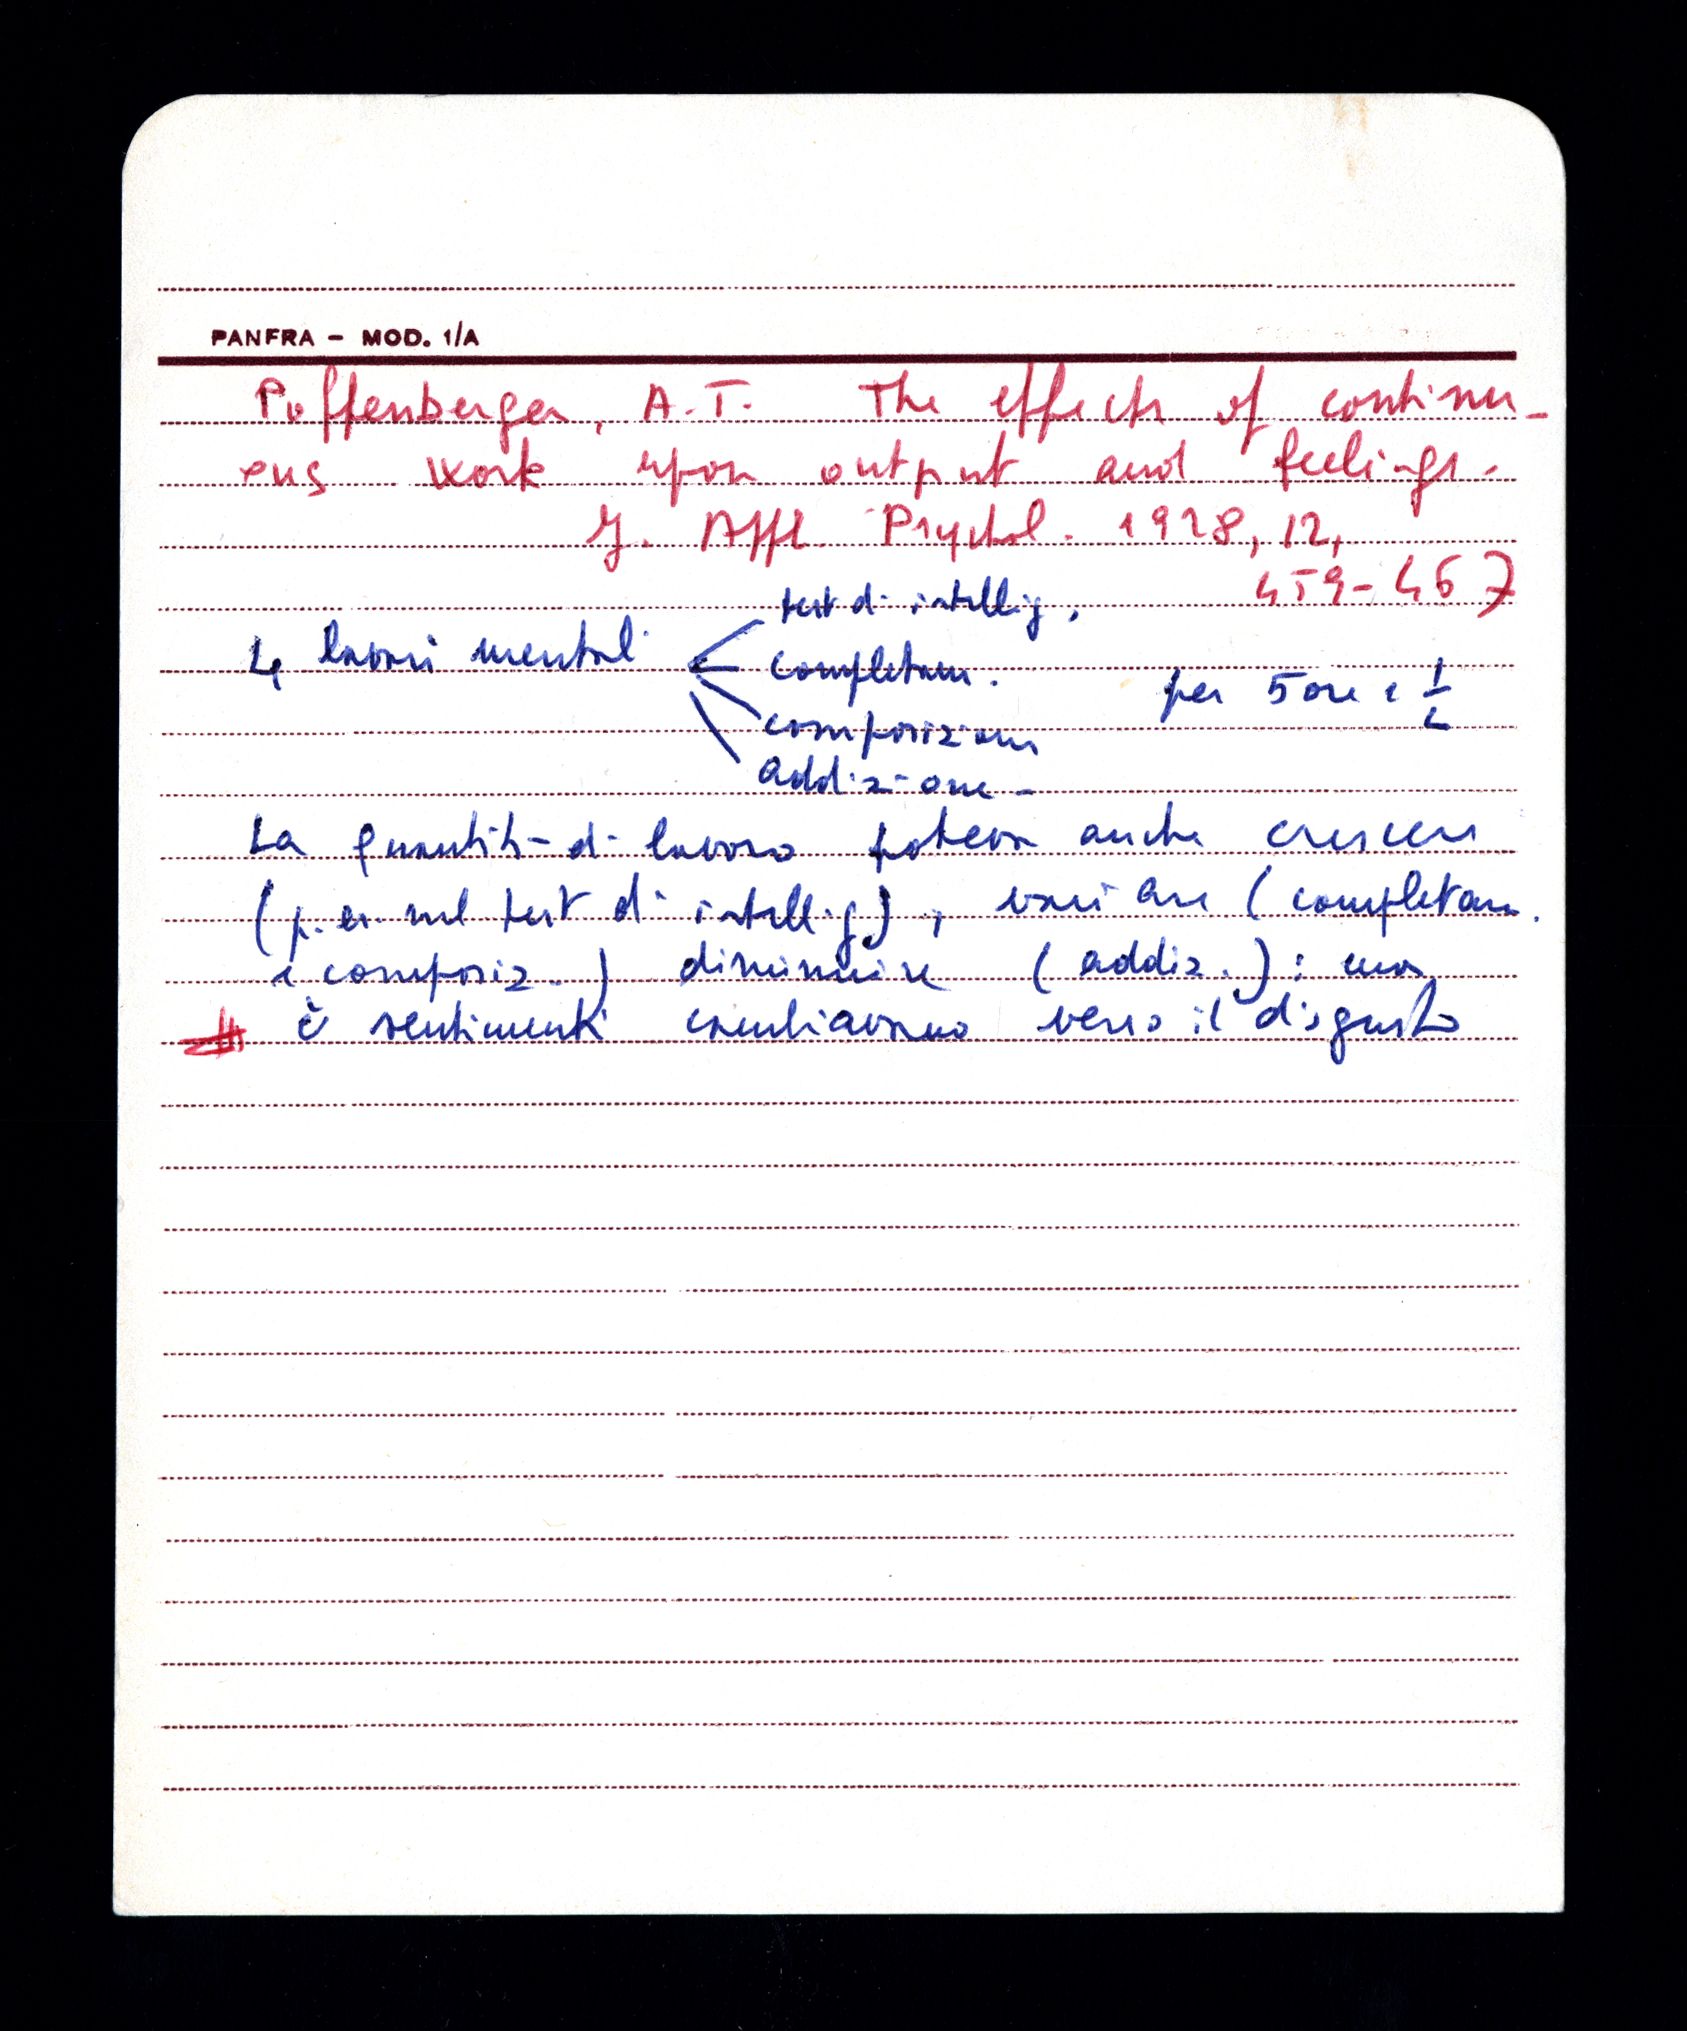 PANFRA – MOD. 1/A
Poffenberger, A.T. The effects of continu-
ous work upon output and feelings.
J. Appl. Psychol. 1928, 12,
459-467
test di intellig.
4 lavori mentali
completam.
per 5 ore e 1/2
composizione
addizione -
La quantità di lavoro poteva anche crescere
(p. es. nel test di intellig), variare (completam.
e composiz.) diminuire (addiz.): ma
i sentimenti cambiavano verso il disgusto